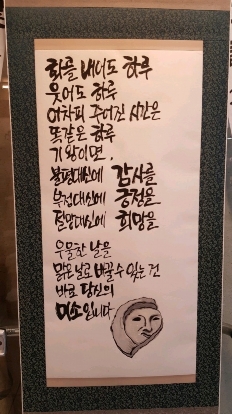 화를 내어도 하루
웃어도 하루
어차피 주어진 시간은
똑같은 하루
기왕이면,
불평대신에 감사를
부정대신에 긍정을
절망대신에 희망을
우울한 날을
맑은 날로 바꿀수 있는 건
바로 당신의
미소입니다